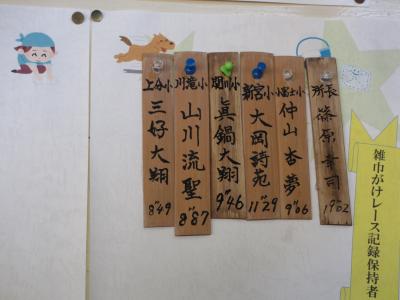 雑巾がけレース記録保持者
所長 篠原幸司 19"02
小富士小 仲山杏夢 9"06
新宮小 大岡詩苑 11"29
関川小 眞鍋大翔 9"46
川滝小 山川流聖 8"87
上分小 三好大翔 8"49